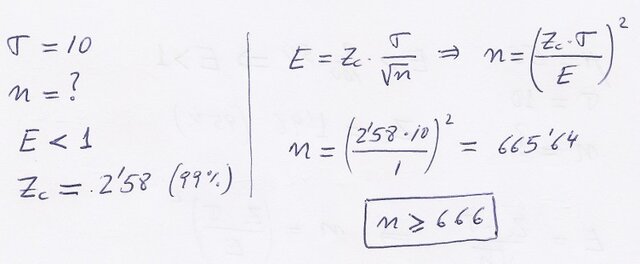 σ = 10
n = ?
E < 1
Zc = 2'58 (99%)
E = Zc · σ/√n ⇒ n = (Zc · σ / E)²
n = (2'58 · 10 / 1)² = 665'64
n ⩾ 666